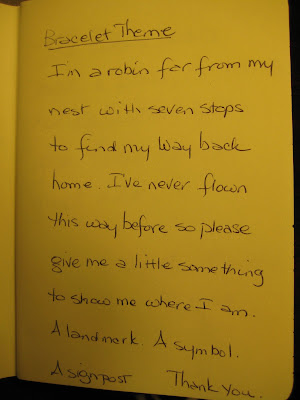 Bracelet Theme
I'm a robin far from my
nest with seven stops
to find my way back
home. I've never flown
this way before so please
give me a little something
to show me where I am.
A landmark. A symbol.
A signpost Thank You.